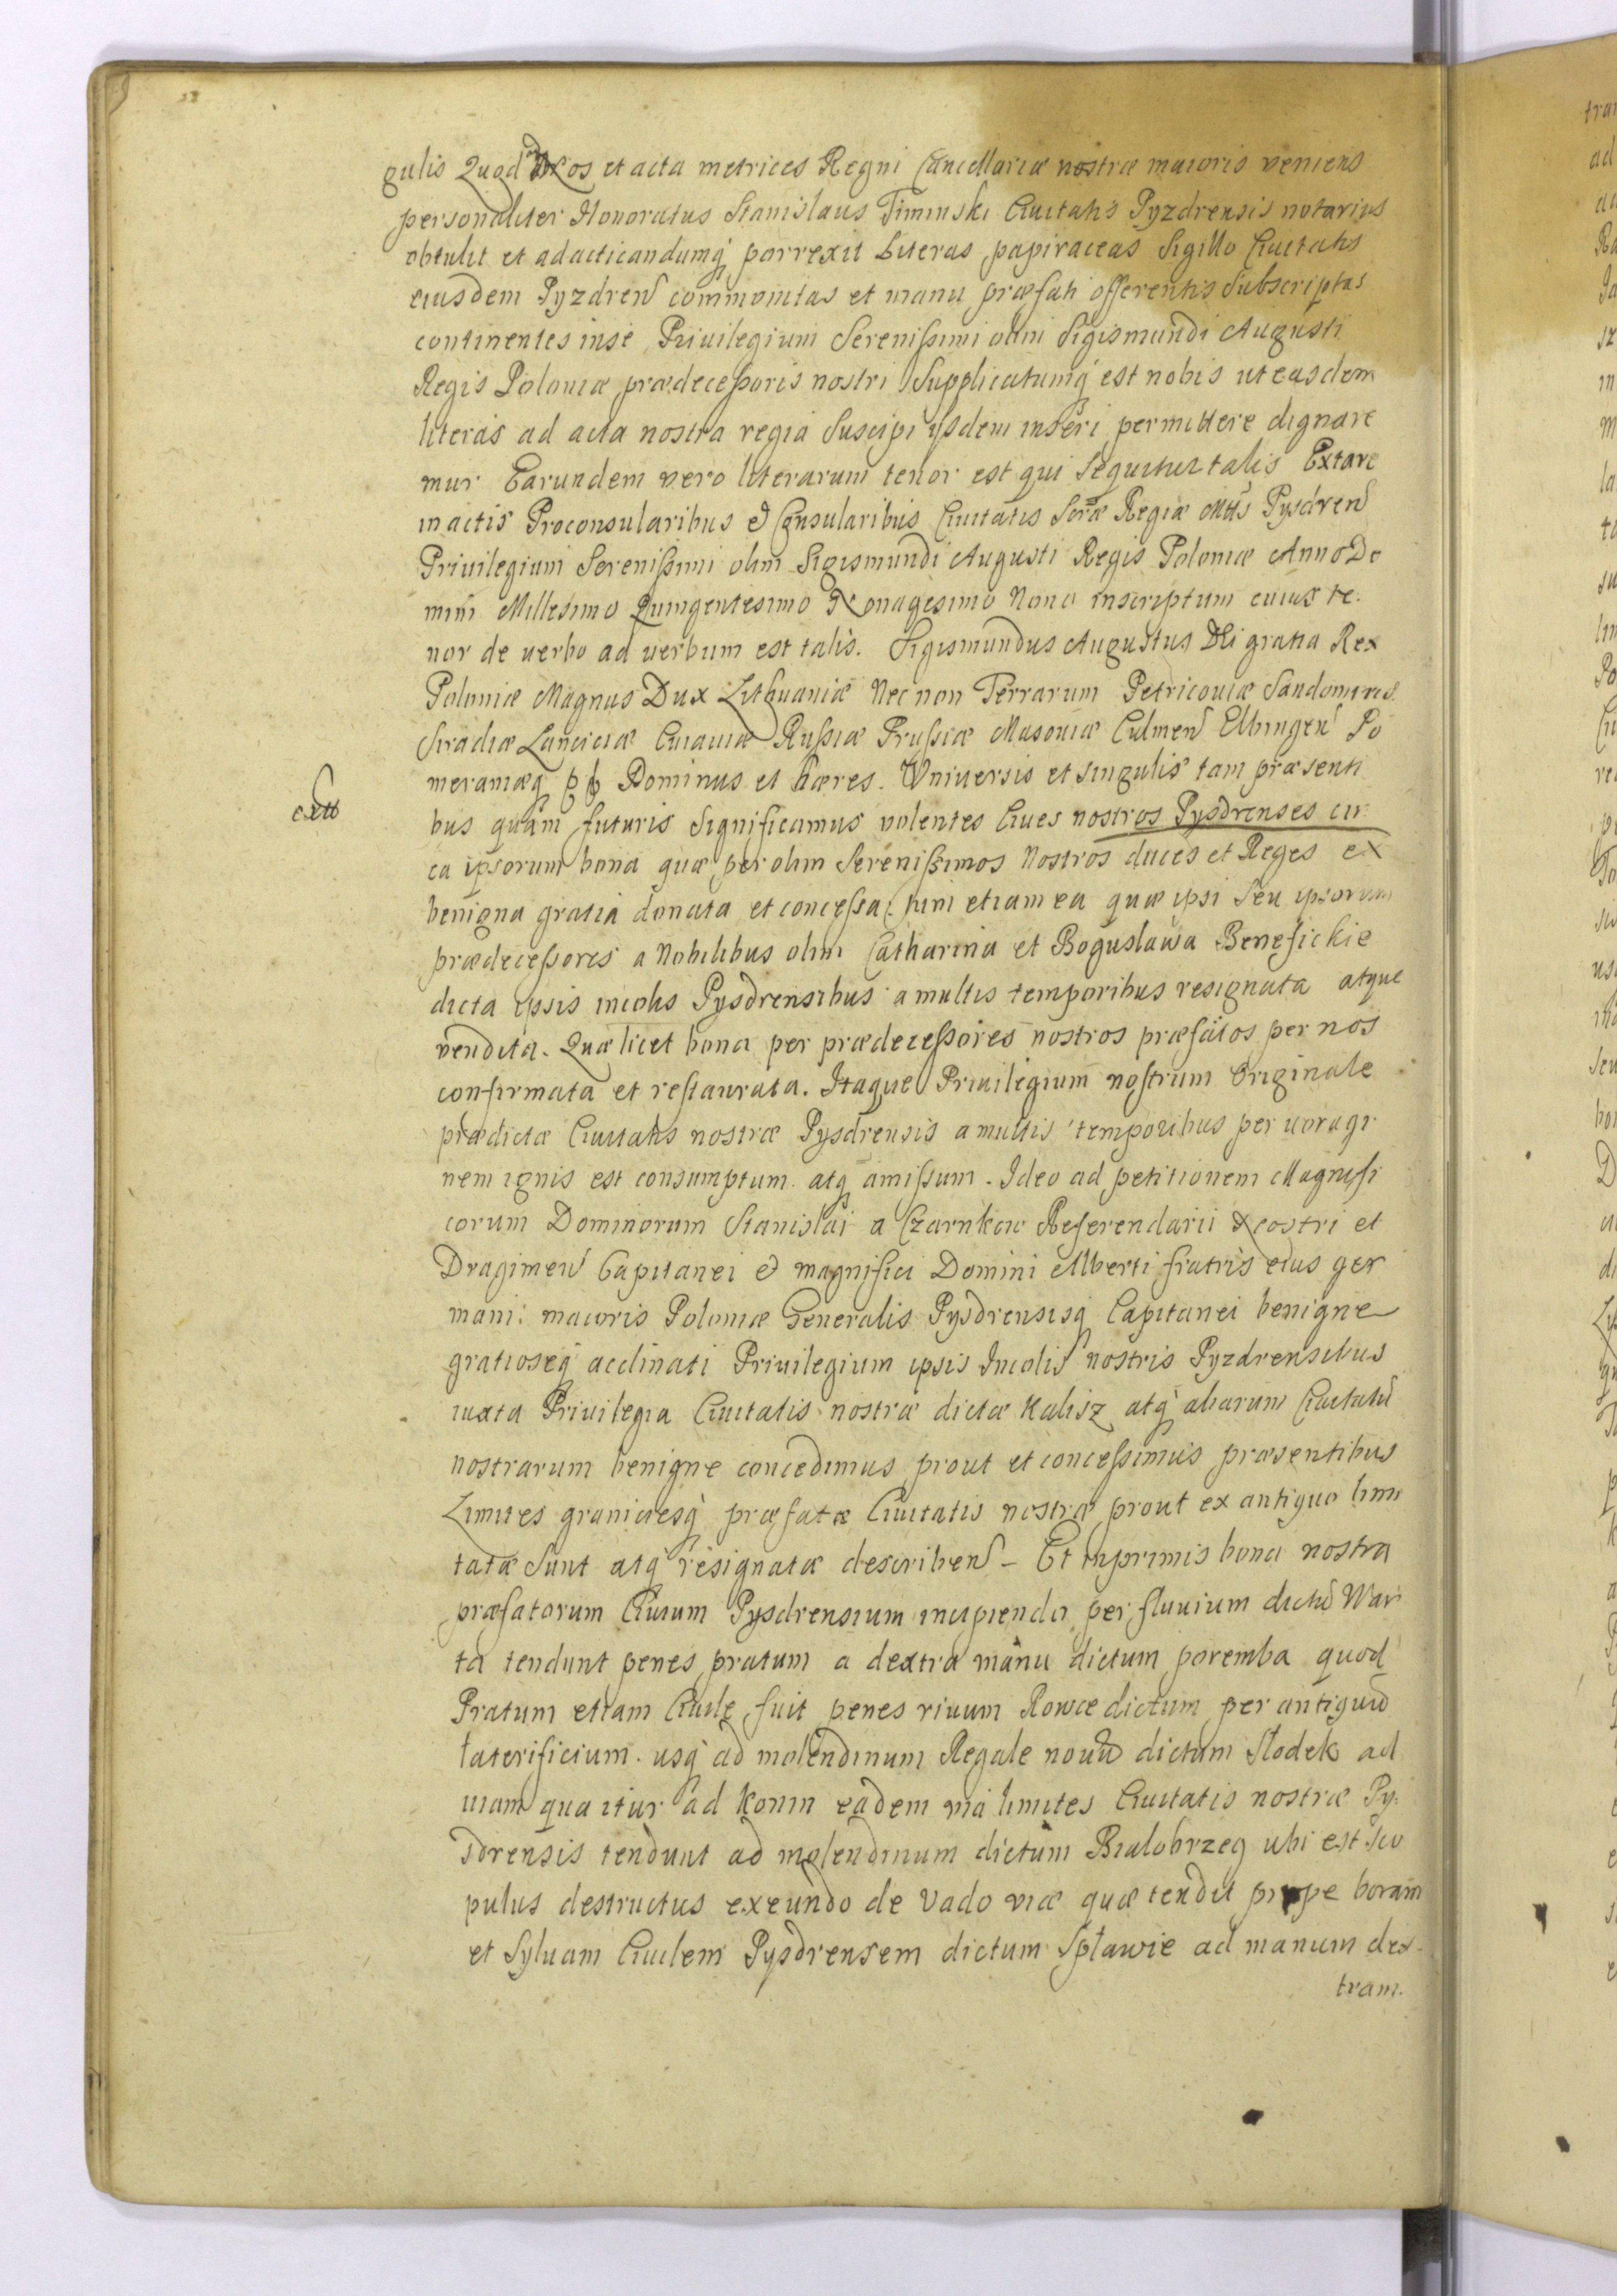 gulis Quod ad Nos et acta metrices Regni Cancellariæ nostræ maioris veniens
personaliter Honoratus Stanislaus Timinski Ciuitatis Pyzdrensis notarius
obtulit et adacticandumq̀ porrexit Literas papiraceas Sigillo Ciuitatis
eiusdem Pyzdren̄ communitas et manu præfati offerentis Subscriptas
continentes in se Priuilegium Serenißimi olim Sigismundi Augusti
Regis Poloniæ prædeceßoris nostri Supplicatumq̀ est nobis ut easdem
literas ad acta nostra regia Suscipi ijsdem inseri permittere dignare
mur Earundem vero literarum tenor est qui sequitur talis Extare
in actis Proconsularibus & Consularibus Ciuitatis Sacræ Regiæ Mttis Pysdren̄
Priuilegium Serenißimi olim Sigismundi Augusti Regis Poloniæ Anno Do
mini Millesimo Quingentesimo Nonagesimo Nono inscriptum cuius te:
nor de uerbo ad uerbum est talis. Sigismundus Augustus Dei gratia Rex
Poloniæ Magnus Dux Lithuaniæ Nec non Terrarum Petricouiæ Sandomiries
Siradiæ Lanciciæ Cuiauiæ Rußiæ Prußiæ Masouiæ Culmen̄ Elbingen̄ Po
meraniæq̀ Dominus et hæres. Vniuersis et singulis tam præsenti
bus quam futuris Significamus volentes Ciues nostros Pysdrenses cir
ca ipsorum bona quæ per olim Serenißimos Nostros duces et Reges ex
benigna gratia donata et conceßa, tum etiam ea quæ ipsi Seu ipsorum
prædeceßores a Nobilibus olim Catharina et Boguslawa Benefickie
dicta ipsis incolis Pysdrensibus a multis temporibus resignata atque
vendita. Quæ licet bona per prædeceßores nostros præfatos per nos
confirmata et restaurata. Itaque Priuilegium nostrum Originale
prædictæ Ciuitatis nostræ Pysdrensis a multis temporibus per uoragi
nem ignis est consumptum atq̀ amißum. Ideo ad petitionem Magnifi
corum Dominorum Stanislai a Czarnkow Referendarii Nostri et
Dragimen̄ Capitanei & magnifici Domini Alberti fratris eius ger
mani: maioris Poloniæ Generalis Pysdrensisq̀ Capitanei benigne
gratioseq̀ acclinati Priuilegium ipsis Incolis nostris Pyzdrensibus
iuxta Priuilegia Ciuitatis nostræ dictæ Kalisz atq̀ aliarum Ciuitatū
nostrarum benigne concedimus prout et conceßimus præsentibus
Limites graniciesq̀ præfatæ Ciuitatis nostræ prout ex antiquo limi
tatæ Sunt atq̀ resignatæ describen̄ - Et inprimis bona nostra
præfatorum Ciuium Pysdrensium incipiendo per fluuium dictū War
ta tendunt penes pratum a dextra manu dictum poremba quod
Pratum etiam Ciuile fuit penes riuum Rowce dictum per antiquū
laterificium usq̀ ad molendinum Regale nouū dictum Słodek ad
uiam qua itur ad Konin eadem via limites Ciuitatis nostræ Py:
sdrensis tendunt ad molendinum dictum Bialobrzeg ubi est Sco
pulus destructus exeundo de Vado viæ quæ tendit prope boram
et Syluam Ciuilem Pysdrensem dictum Spławie ad manum dex-
tram.